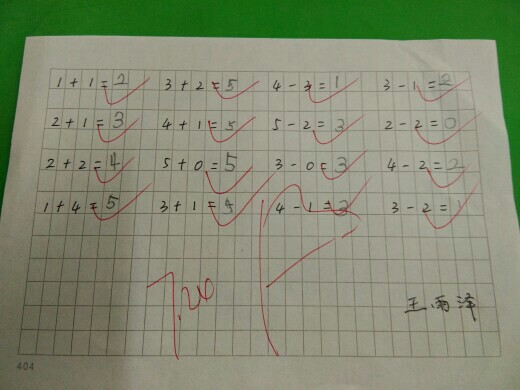 1+1=2 3+2=5 4-3=1 3-1=2
2+1=3 4+1=5 5-2=3 2-2=0
2+2=4 5+0=5 3-0=3 4-2=2
1+4=5 3+1=4 4-1=3 3-2=1
王雨泽
404